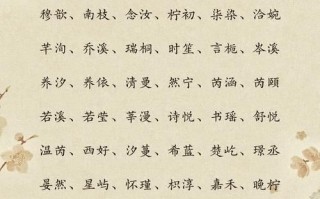 穆歆、南枝、念汝、柠初、柒染、洽婉
芊洵、乔溪、瑞桐、时笙、言栀、岑溪
养汐、养依、清曼、然宁、芮涵、芮颐
若溪、若莹、莘漫、诗悦、书瑶、舒悦
温芮、西妤、汐蔓、希蓝、楚屹、璟丞
晏然、星屿、怀瑾、枳淳、嘉禾、晚柠